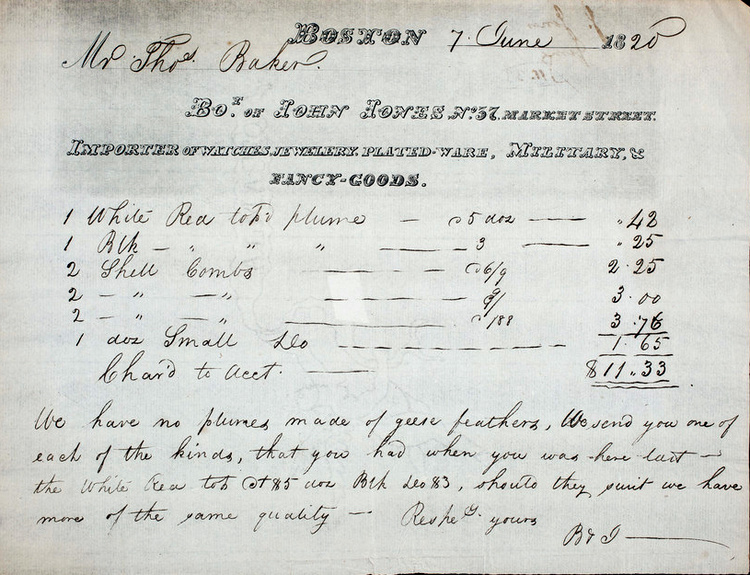 BOSTON 7 June 1820
Mr Thos Baker
Bot. of JOHN JONES No. 57, MARKET STREET.
IMPORTER OF WATCHES, JEWELERY, PLATED-WARE, MILITARY, &
FANCY-GOODS.
1 White Red top'd plume — @ 5 doz — " 42
1 Blk — " " " — 3 — " 25
2 Shell Combs — @ 6/9 2.25
2 — " — " — 9/ 3.00
2 — " — " — @ 188 3.76
1 doz Small Do — 1.65
Char'd to Acct. — $11.33
We have no plumes made of geese feathers, We send you one of
each of the kinds, that you had when you was here last —
the White Red tob @ $5 doz Blk Do $3, should they suit we have
more of the same quality — Respey. yours
B & J —